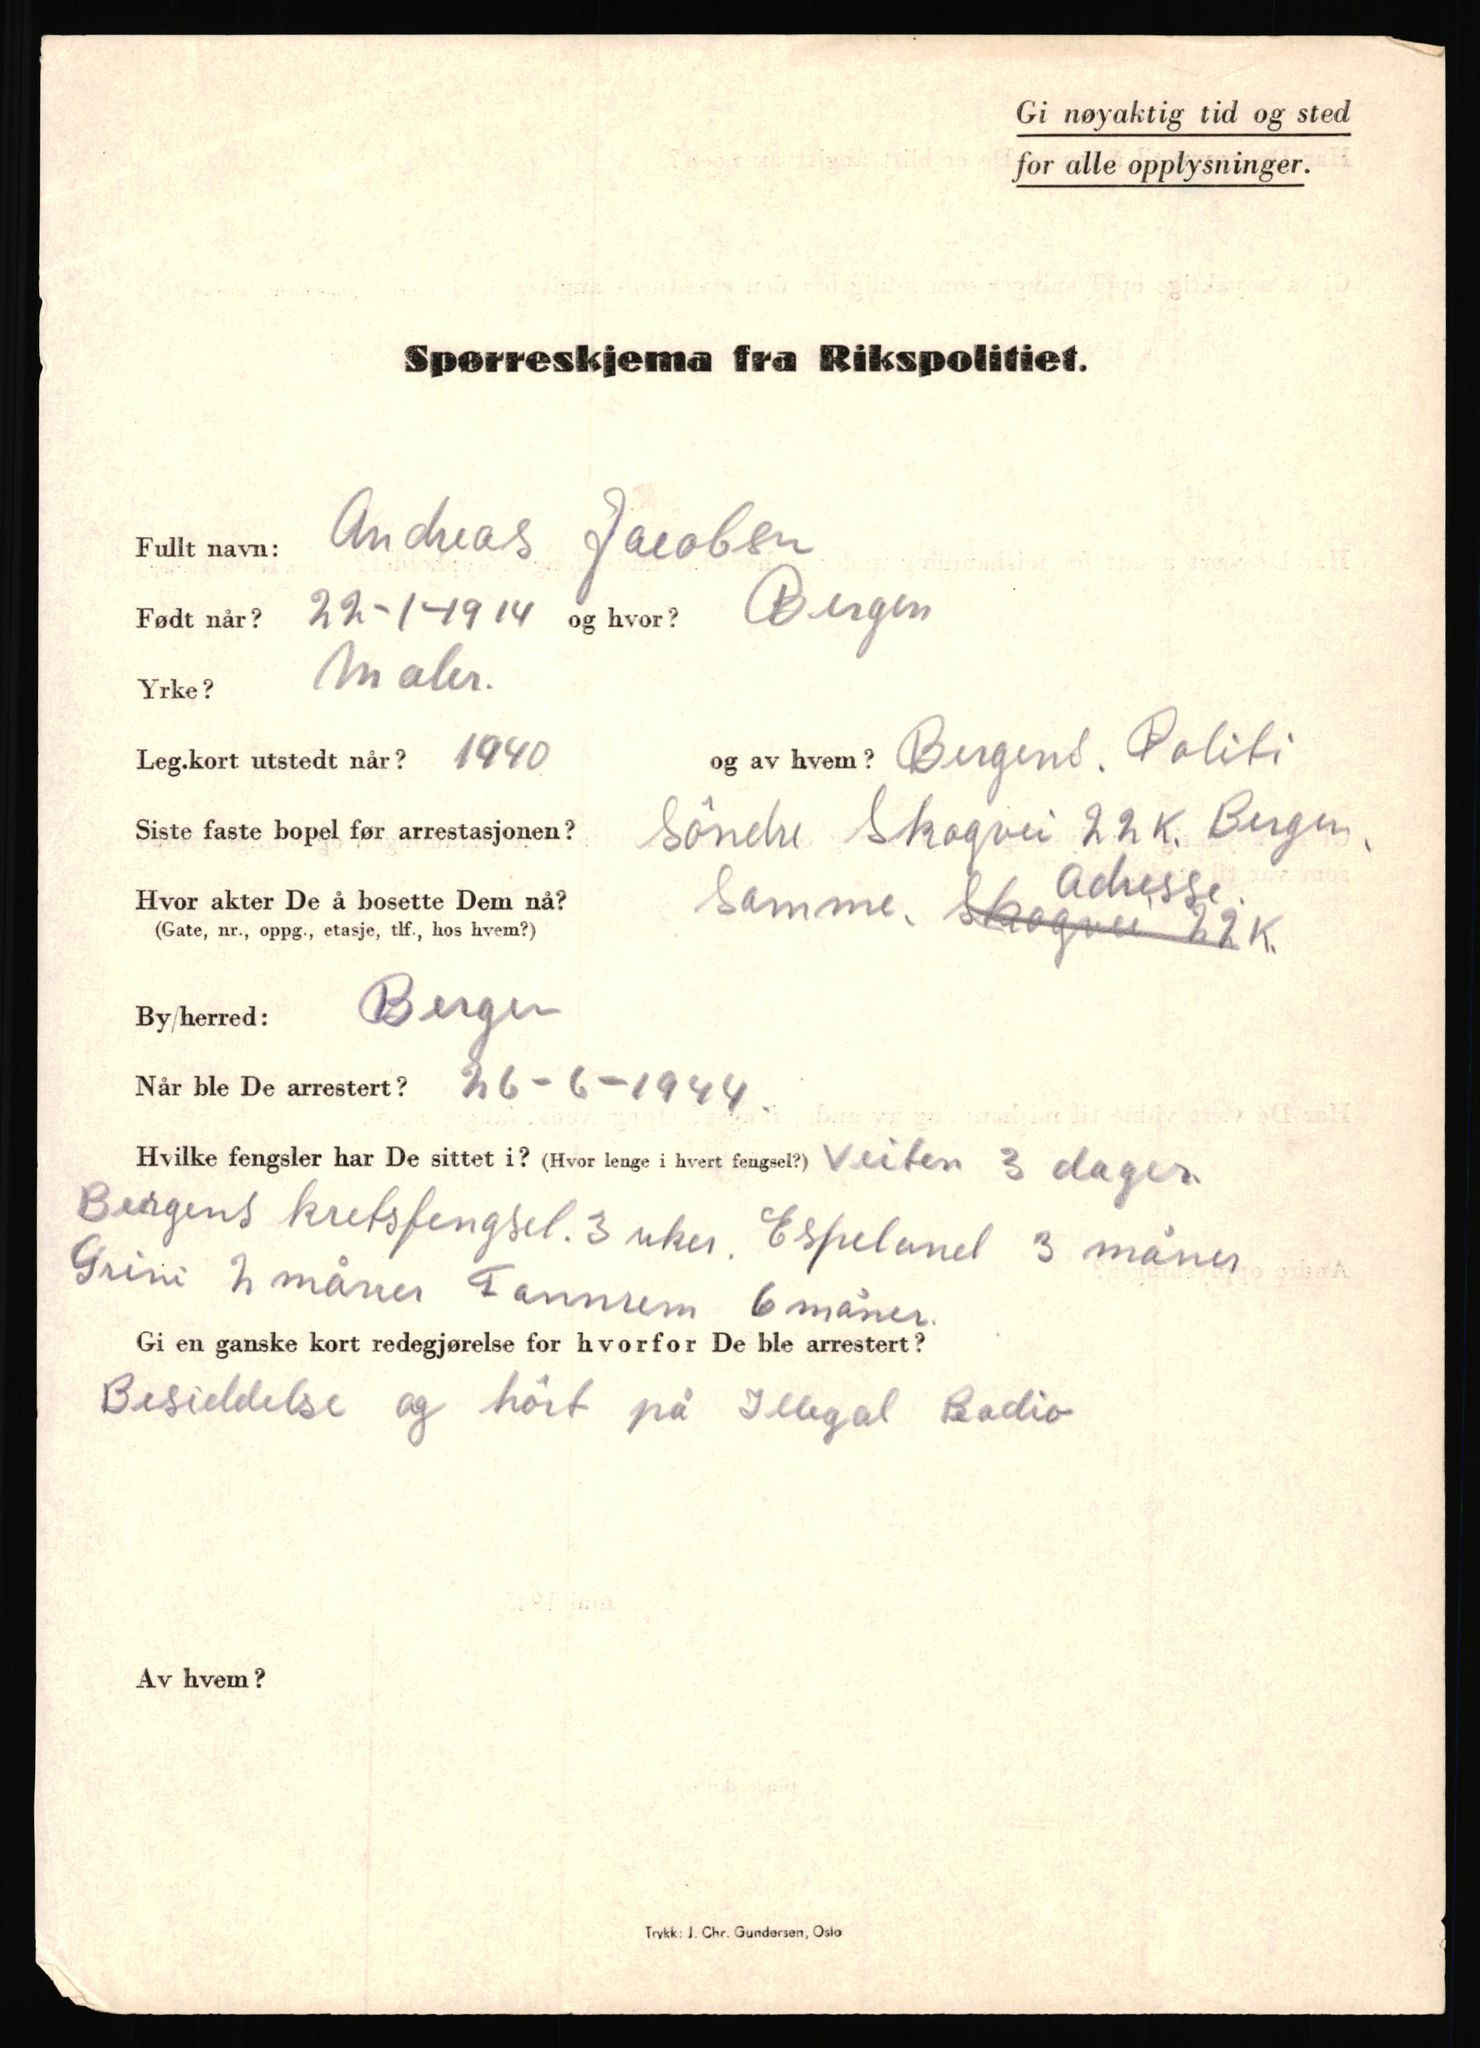 Gi nøyaktig tid og sted
for alle opplysninger.
Spørreskjema fra Rikspolitiet.
Fullt navn: Andreas Jacobsen
Født når? 22-1-1914 og hvor? Bergen
Yrke? Maler.
Leg.kort utstedt når? 1940 og av hvem? Bergens. Politi
Siste faste bopel før arrestasjonen? Söndre Skogvei 22K. Bergen.
Hvor akter De å bosette Dem nå? Samme. Adresse.
(Gate, nr., oppg., etasje, tlf., hos hvem?) Skogvei 22K.
By/herred: Bergen
Når ble De arrestert? 26-6-1944.
Hvilke fengsler har De sittet i? (Hvor lenge i hvert fengsel?) Veiten 3 dager.
Bergens kretsfengsel. 3 uker. Espeland 3 måner
Grini 2 måner Fannrem 6 måner.
Gi en ganske kort redegjørelse for hvorfor De ble arrestert?
Besiddelse og hört på Illegal Radio
Av hvem?
Trykk: J. Chr. Gundersen, Oslo